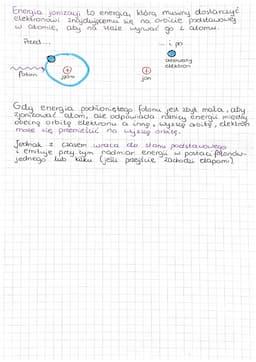 Energia jonizacji to energia, którą musimy dostarczyć
elektronowi znajdującemu się na orbicie podstawowej
w atomie, aby na stałe wyrwać go z atomu.
Przed... ... i po
oderwany
elektron
foton jądro jon
Gdy energia pochłoniętego fotonu jest zbyt mała, aby
zjonizować atom, ale odpowiada różnicy energii między
obecną orbitą elektronu a inną, wyższą orbitą, elektron
może się przemieścić na wyższą orbitę.
Jednak z czasem wraca do stanu podstawowego
i emituje przy tym nadmiar energii w postaci fotonów-
jednego lub kilku (jeśli przejście zachodzi etapami)